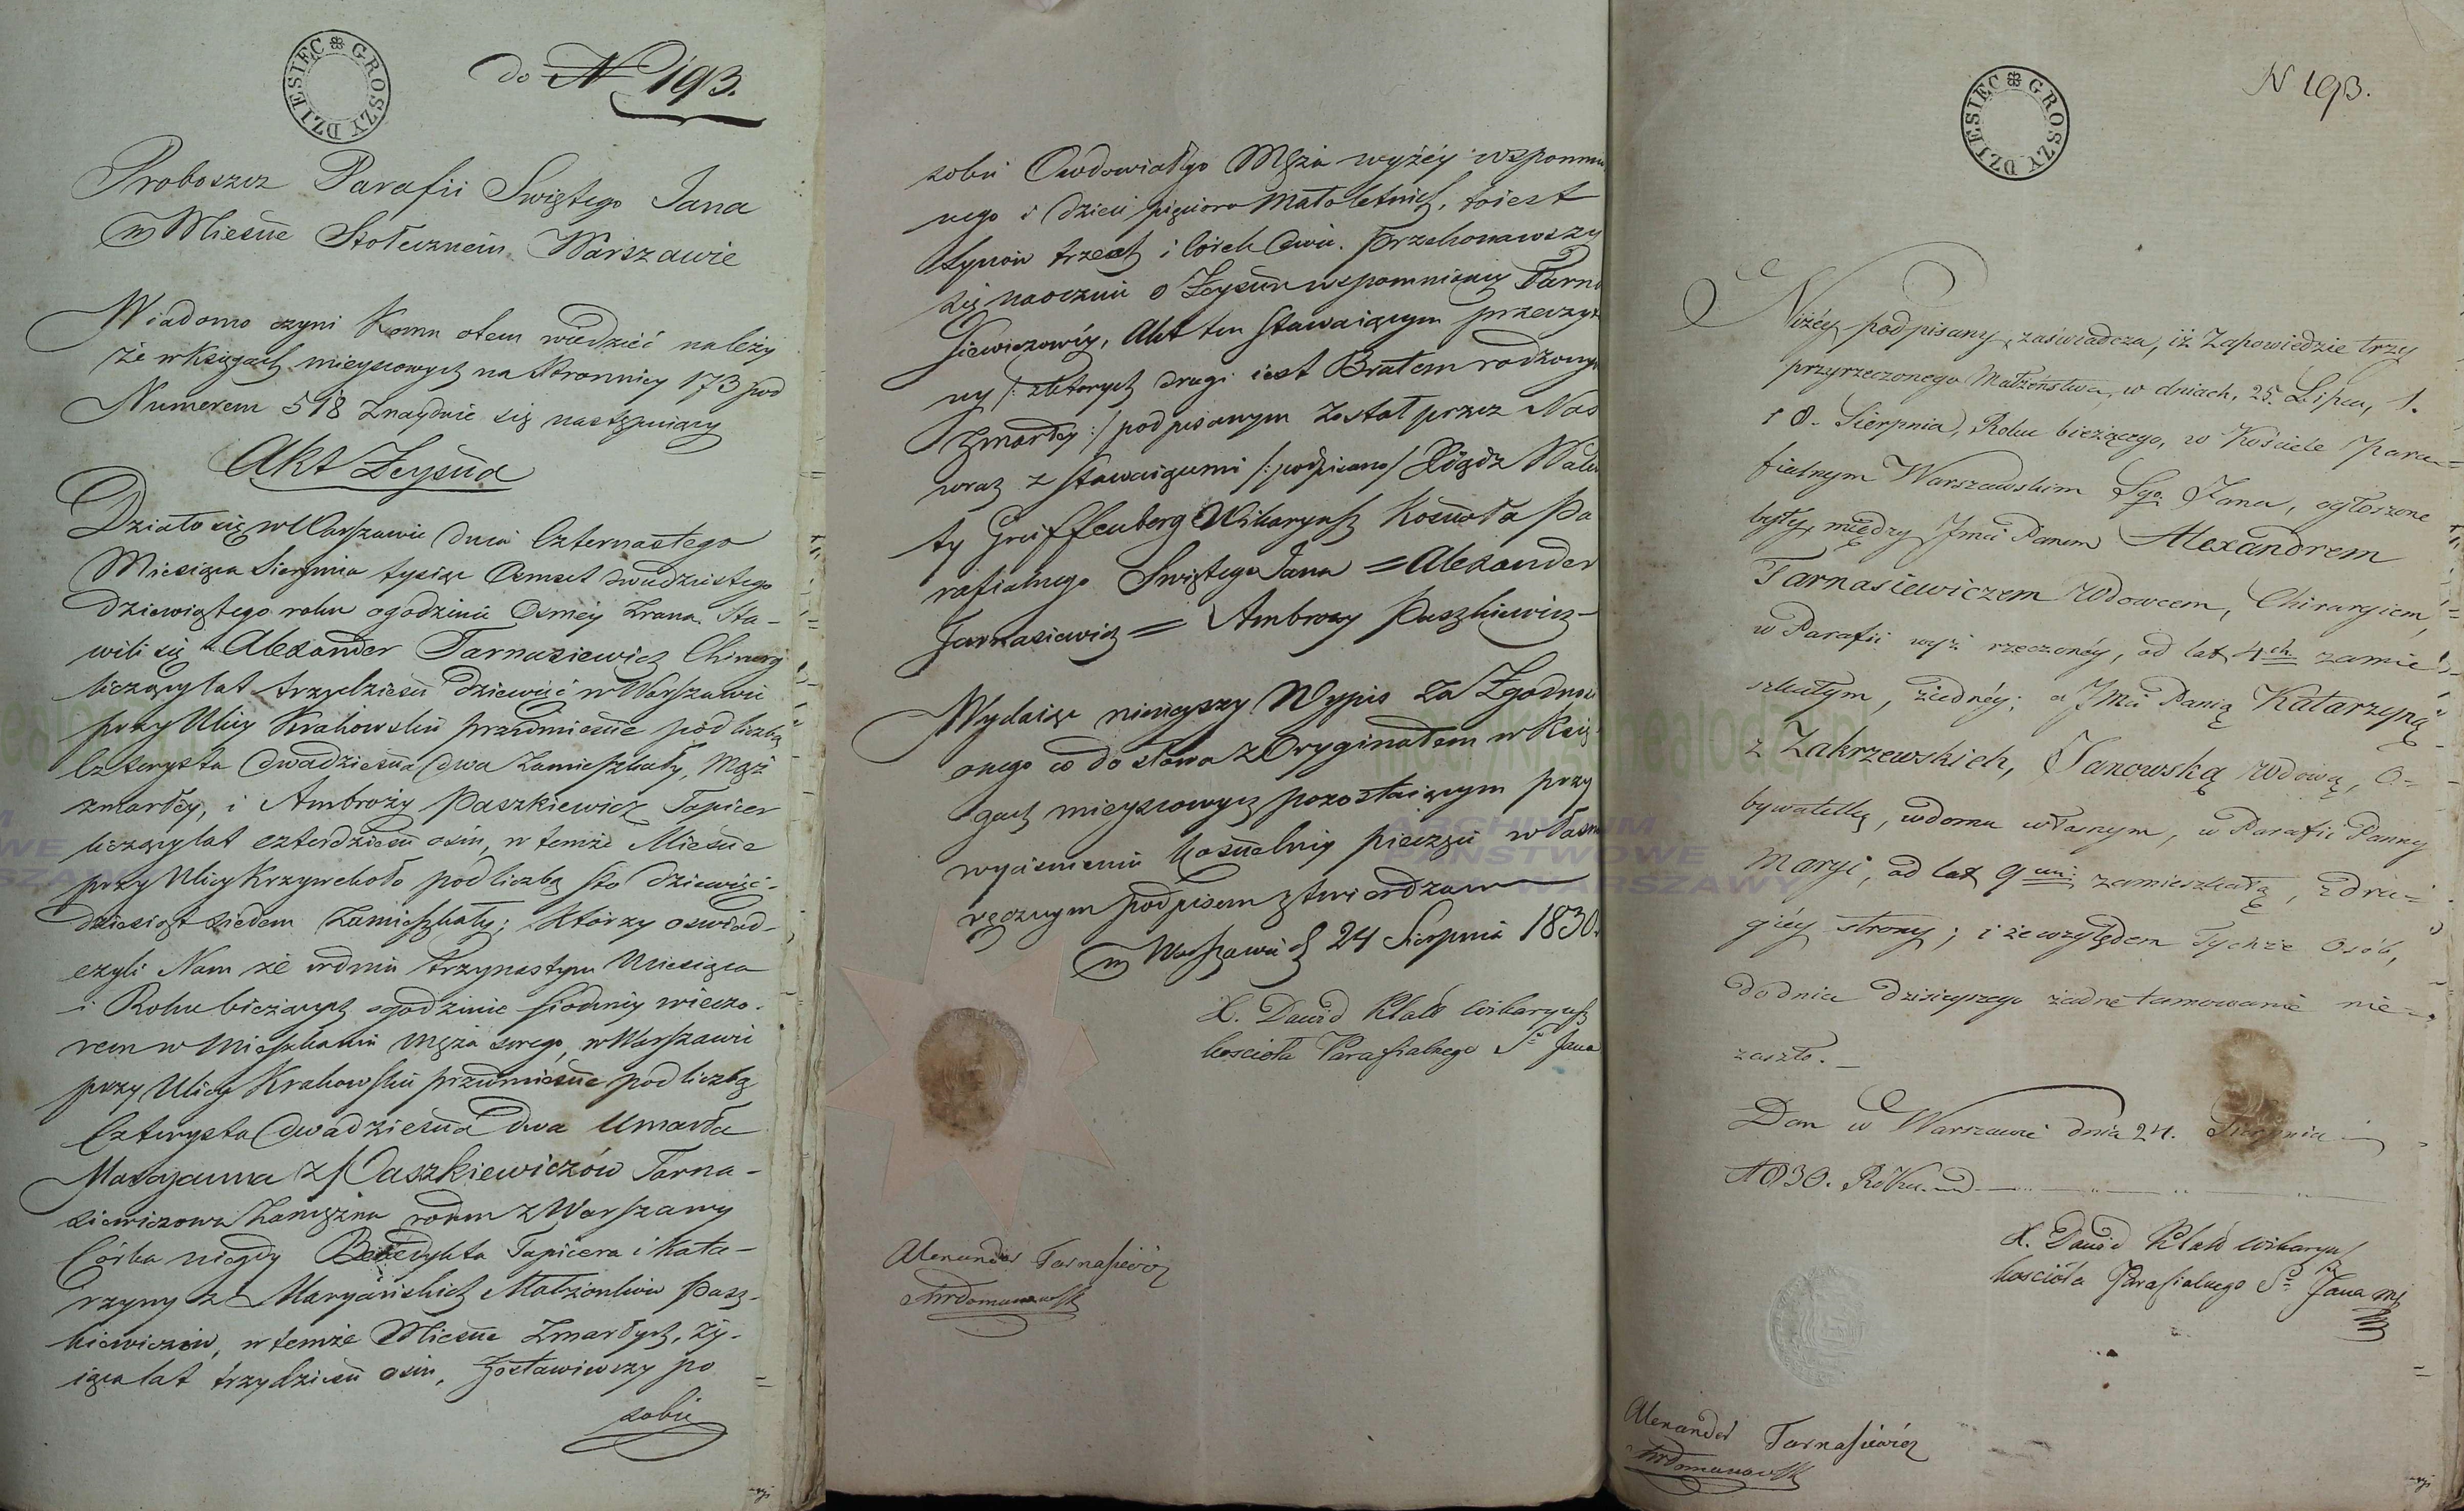 DZIESIĘC GROSZY
do N 193.
Proboszcz Parafii Swiętego Jana
w Miescie Stołecznem Warszawie
Wiadomo czyni komu otem wiedzieć należy
że w Księgach mieyscowych na Stronnicy 173 pod
Numerem 518 znayduie się następuiący
Akt Zeyscia
Działo się w Warszawie dnia Czternastego
Miesiąca Sierpnia tysiąc Osmset dwudziestego
dziewiątego roku ogodzinie Osmey zrana. Sta-
wili się Alexander Tarnasiewicz Chirurg
liczący lat trzydzieści dziewięć w Warszawie
przy Ulicy Krakowskie przedmieście pod liczbą
Czterysta dwadzieścia dwa zamieszkały, Mąż
zmarłey, i Ambroży Paszkiewicz Tapicer
liczący lat czterdzieści osm, w temże Mieście
przy Ulicy Krzywekoło pod liczbą sto dziewięć-
dziesiąt siedem zamieszkały; którzy oswiad-
czyli Nam że wdniu trzynastym Miesiąca
i Roku bieżących ogodzinie siodmey wieczo-
rem w Mieszkaniu Męża swego, w Warszawie
przy Ulicy Krakowskie przedmieście pod liczbą
Czterysta dwadzieścia dwa Umarła
Maryanna z Paszkiewiczów Tarna-
siewiczowa Zamężna rodem z Warszawy
Córka niegdy Benedykta Tapicera i Kata-
rzyny z Maryańskich Małżonków Pasz-
kiewiczów, w temże Mieście zmarłych, ży-
iąca lat trzydzieści osm, Zostawiwszy po
sobie
sobie Owdowiałego Męża wyżey wspomnio
nego i dzieci pięcioro małoletnich, toiest
Synów trzech i Córek dwie. Przekonawszy
się naocznie o Zeyściu wspomnioney Tarna
siewiczowéy, Akt ten Stawaiącym przeczyta
ny /: z których drugi iest Bratem rodzonym
Zmarłey :/ podpisanym został przez Nas
wraz z Stawaiącemi /: podpisano / Xiądz Walen
ty Greiffenberg Wikaryusz Kościoła Pa
rafialnego Swiętego Jana = Alexander
Tarnasiewicz = Ambroży Paszkiewicz -
Wydaiąc ninieyszy Wypis za Zgodność
onego co do słowa z Oryginałem w Księ
gach mieyscowych pozostaiącym przy
wyciśnieniu kościelney pieczęci własno
ręcznym podpisem stwierdzam
w Warszawie d 24 Sierpnia 1830.
X. Dawid Wikaryusz
kościoła Parafialnego Sgo Jana
Alexander Tarnasiewicz
DZIESIĘC GROSZY
N 193.
Niżéy podpisany, zaświadcza, iż Zapowiedzie trzy
przyrzeczonego Małżeństwa, w dniach, 25. Lipca, 1.
i 8. Sierpnia, Roku bieżącego, w Kościele Para=
fialnym Warszawskim Sgo Jana, ogłoszone
były, między Jmci Panem Alexandrem
Tarnasiewiczem Wdowcem, Chirurgiem,
w Parafii wyż rzeczonéy, od lat 4ch zamie=
szkałym, z iednéy; a Jmci Panią Katarzyną
z Zakrzewskich, Janowską Wdową, O=
bywatelką, wdomu własnym, w Parafii Panny
Maryi, od lat 9ciu zamieszkałą, z dru=
giéy strony; i że względem Tychże Osób,
do dnia dzisieyszego żadne tamowanie nie=
zaszło.
Dan w Warszawie dnia 24. Sierpnia
1830. Roku.
X. Dawid Wikaryusz
kościoła Parafialnego Sgo Jana
Alexander Tarnasiewicz
ARCHIWUM
PAŃSTWOWE
WARSZAWY